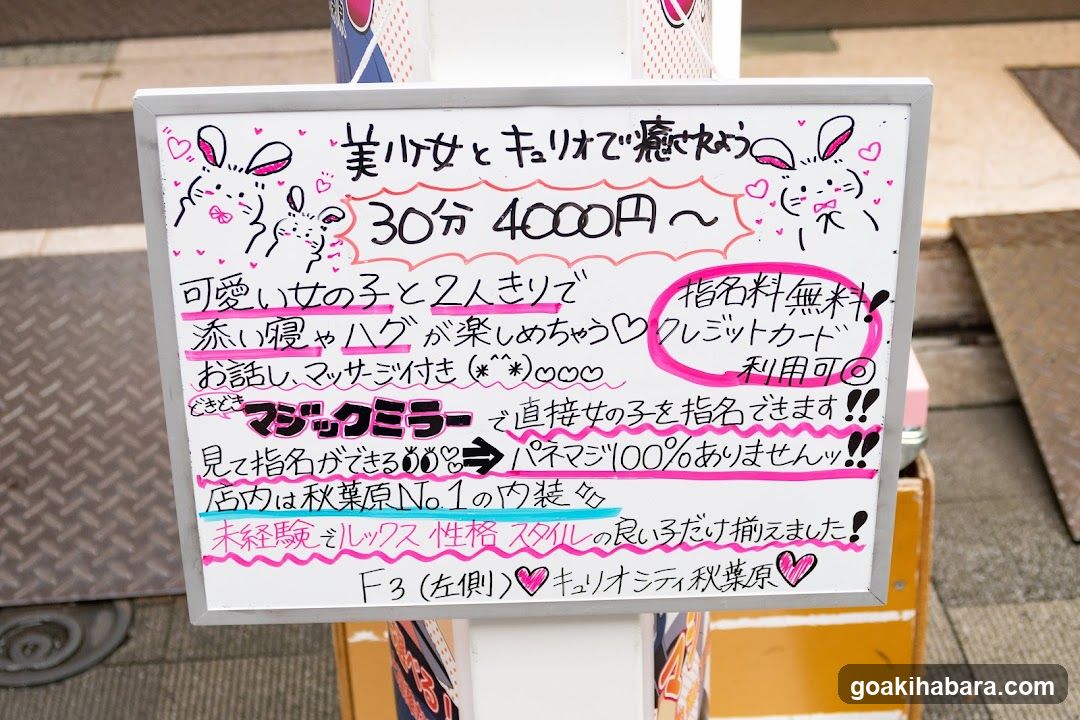 美少女とキュリオで癒されよう
30分 4000円～
可愛い女の子と2人きりで
添い寝やハグが楽しめちゃう♡
お話し、マッサージ付き(*^^*)♡♡♡
指名料無料!
クレジットカード
利用可◎
どきどき
マジックミラーで直接女の子を指名できます!!
見て指名ができる👀♡➡パネマジ100%ありませんッ!!
店内は秋葉原No.1の内装
未経験でルックス 性格 スタイルの良い子だけ揃えました!
F3(左側)♥キュリオシティ秋葉原♥
goakihabara.com